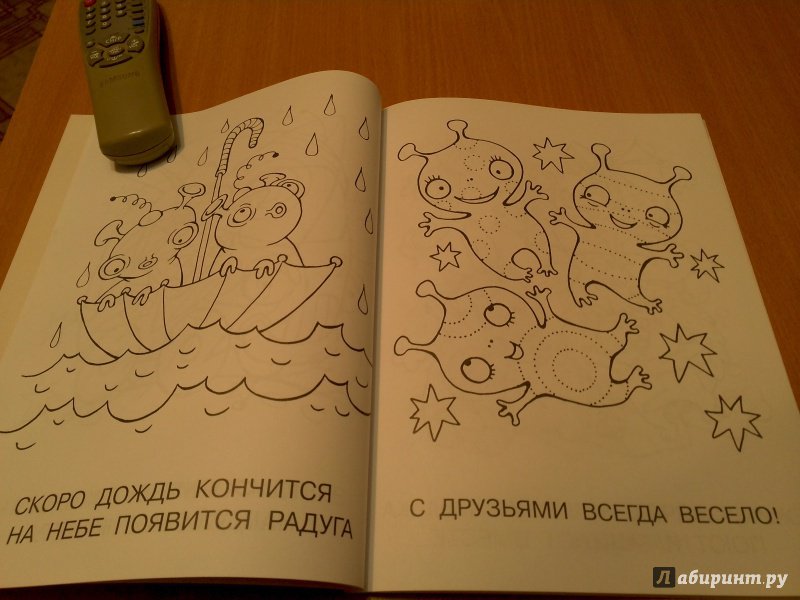 SAMSUNG
СКОРО ДОЖДЬ КОНЧИТСЯ
НА НЕБЕ ПОЯВИТСЯ РАДУГА
С ДРУЗЬЯМИ ВСЕГДА ВЕСЕЛО!
Лабиринт.ру